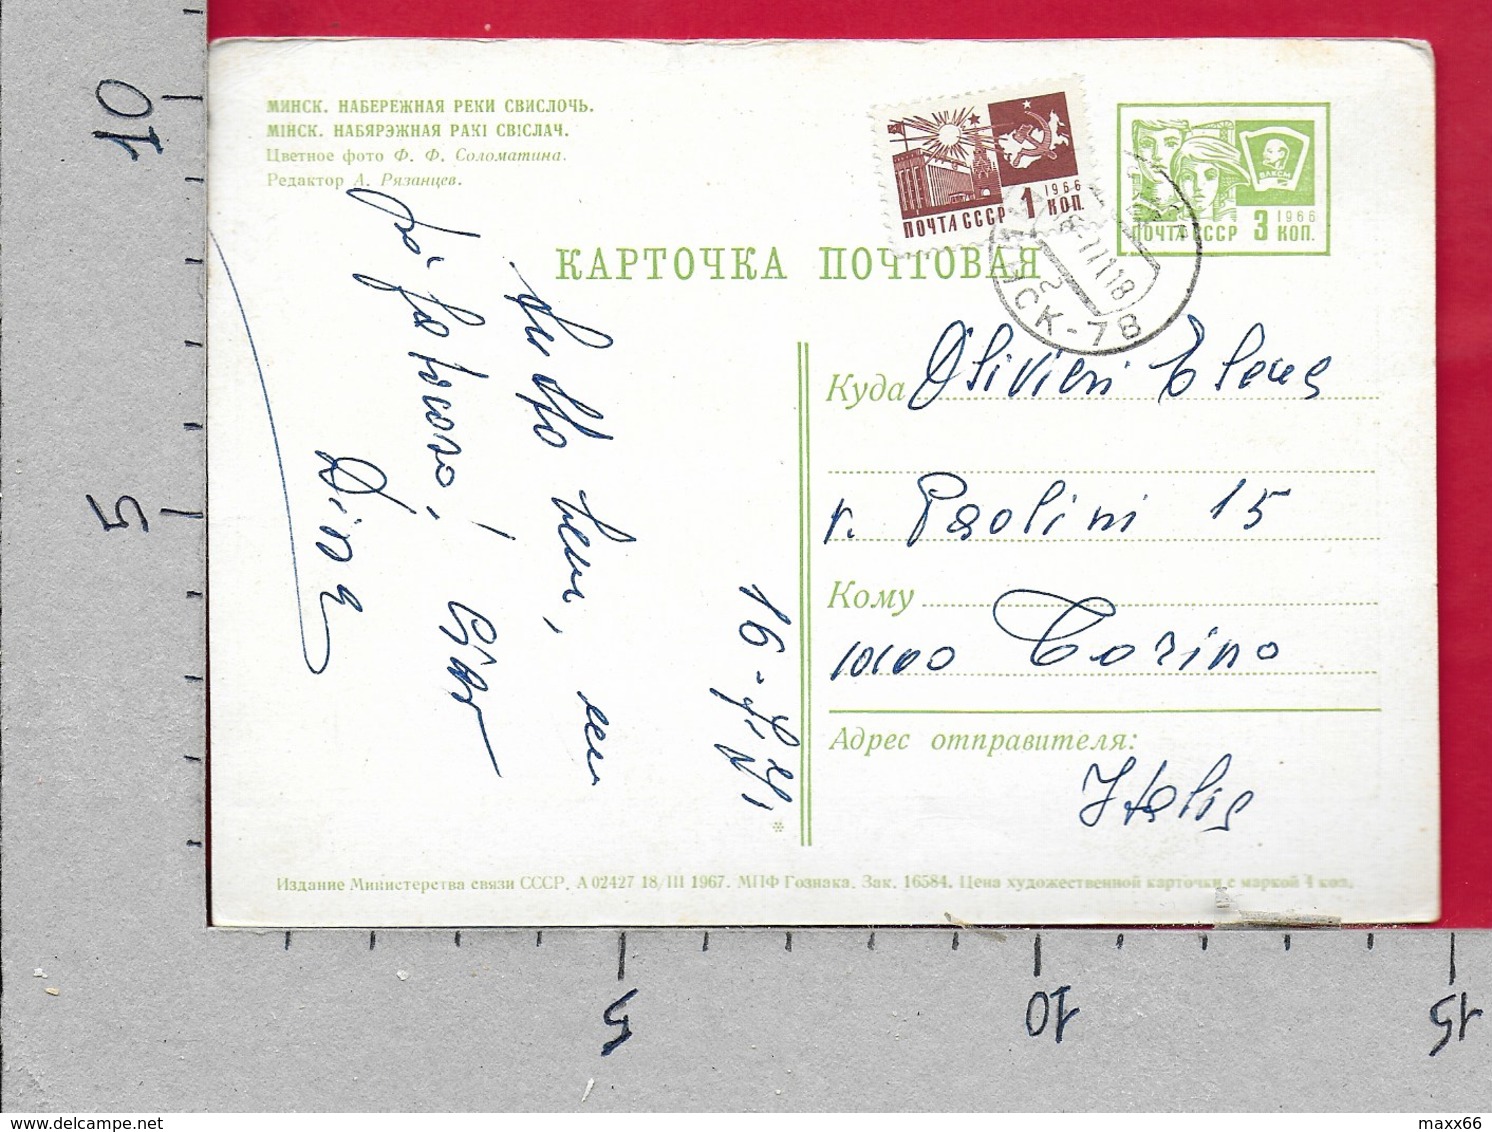 МИНСК. НАБЕРЕЖНАЯ РЕКИ СВИСЛОЧЬ.
МІНСК. НАБЯРЭЖНАЯ РАКІ СВІСЛАЧ.
Цветное фото Ф. Ф. Соломатина.
Редактор А. Рязанцев.
1966
ПОЧТА СССР 1 КОП.
ВЛКСМ
1966
ПОЧТА СССР 3 КОП.
КАРТОЧКА ПОЧТОВАЯ
СК-7В
Куда Olivieri Elena
v. Paolini 15
Кому
10100 Torino
Адрес отправителя:
Italia
16-
Tutto bene,
Ciao
Dina
*
Издание Министерства связи СССР. А 02427 18/III 1967. МПФ Гознака. Зак. 16584. Цена художественной карточки с маркой 4 коп.
10
5
5
10
15
maxx66